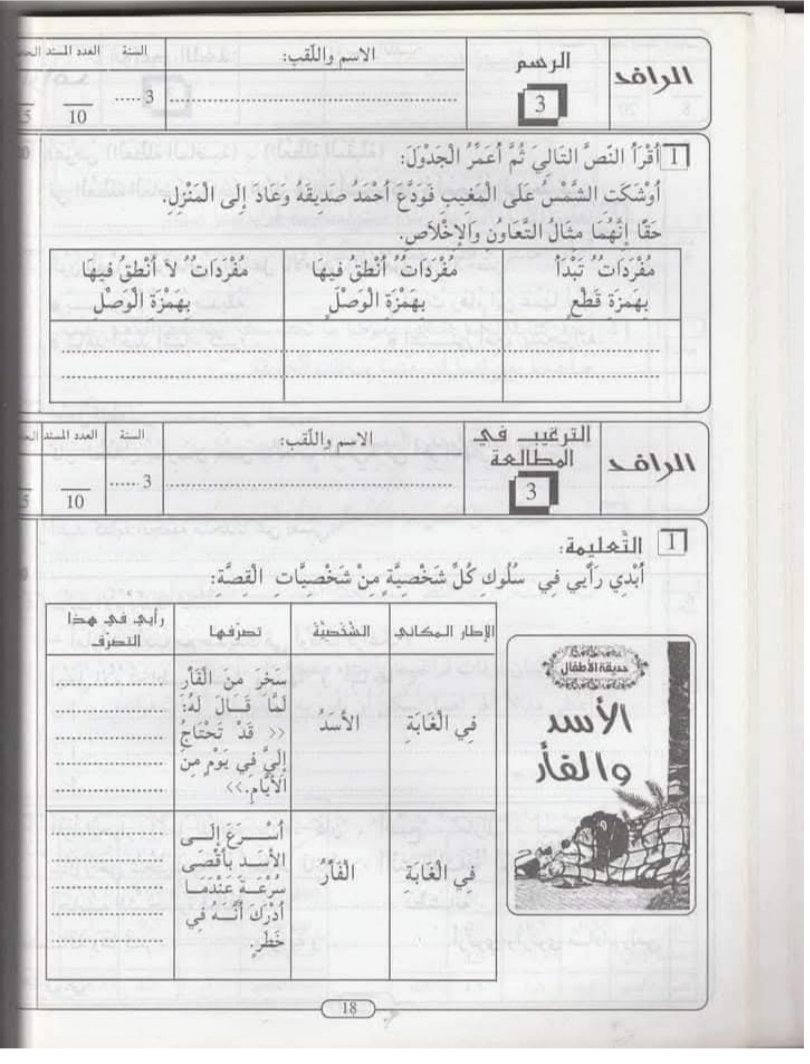 الرافد
الرسم
3
الاسم واللّقب:
السنة
3
العدد المسند
10
1 أَقْرَأُ النَّصَّ التَّالِيَ ثُمَّ أُعَمِّرُ الْجَدْوَلَ:
أَوْشَكَتِ الشَّمْسُ عَلَى الْمَغِيبِ فَوَدَّعَ أَحْمَدُ صَدِيقَهُ وَعَادَ إِلَى الْمَنْزِلِ.
حَقًّا إِنَّهُمَا مِثَالُ التَّعَاوُنِ وَالْإِخْلَاصِ.
مُفْرَدَاتٌ تَبْدَأُ
بِهَمْزَةِ قَطْعٍ
مُفْرَدَاتٌ أَنْطِقُ فِيهَا
بِهَمْزَةِ الْوَصْلِ
مُفْرَدَاتٌ لاَ أَنْطِقُ فِيهَا
بِهَمْزَةِ الْوَصْلِ
الرافد
الترغيب في
المطالعة
3
الاسم واللّقب:
السنة
3
العدد المسند
10
1 التّعليمة:
أُبْدِي رَأْيِي فِي سُلُوكِ كُلِّ شَخْصِيَّةٍ مِنْ شَخْصِيَّاتِ الْقِصَّةِ:
حديقة الأطفال
الأسد
والفأر
الإطار المكاني
الشّخصيّة
تصرّفها
رأيي في هذا
التصرّف
فِي الْغَابَةِ
الأَسَدُ
سَخِرَ مِنَ الْفَأْرِ
لَمَّا قَالَ لَهُ:
<< قَدْ تَحْتَاجُ
إِلَيَّ فِي يَوْمٍ مِنَ
الأَيَّامِ.>>
فِي الْغَابَةِ
الْفَأْرُ
أَسْرَعَ إِلَى
الأَسَدِ بِأَقْصَى
سُرْعَةٍ عِنْدَمَا
أَدْرَكَ أَنَّهُ فِي
خَطَرٍ.
18